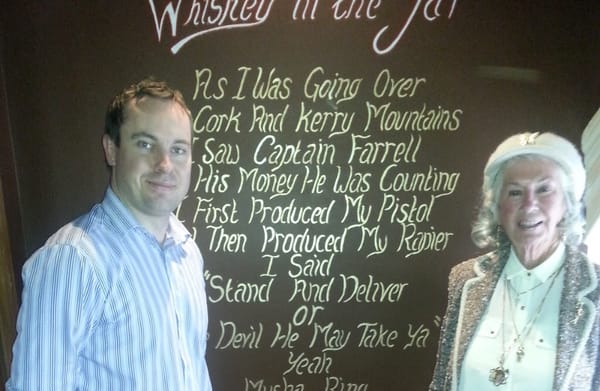 Whiskey in the Jar
As I Was Going Over
Cork And Kerry Mountains
I Saw Captain Farrell
His Money He Was Counting
I First Produced My Pistol
I Then Produced My Rapier
I Said
"Stand And Deliver
or
Devil He May Take Ya"
Yeah
Musha Ring